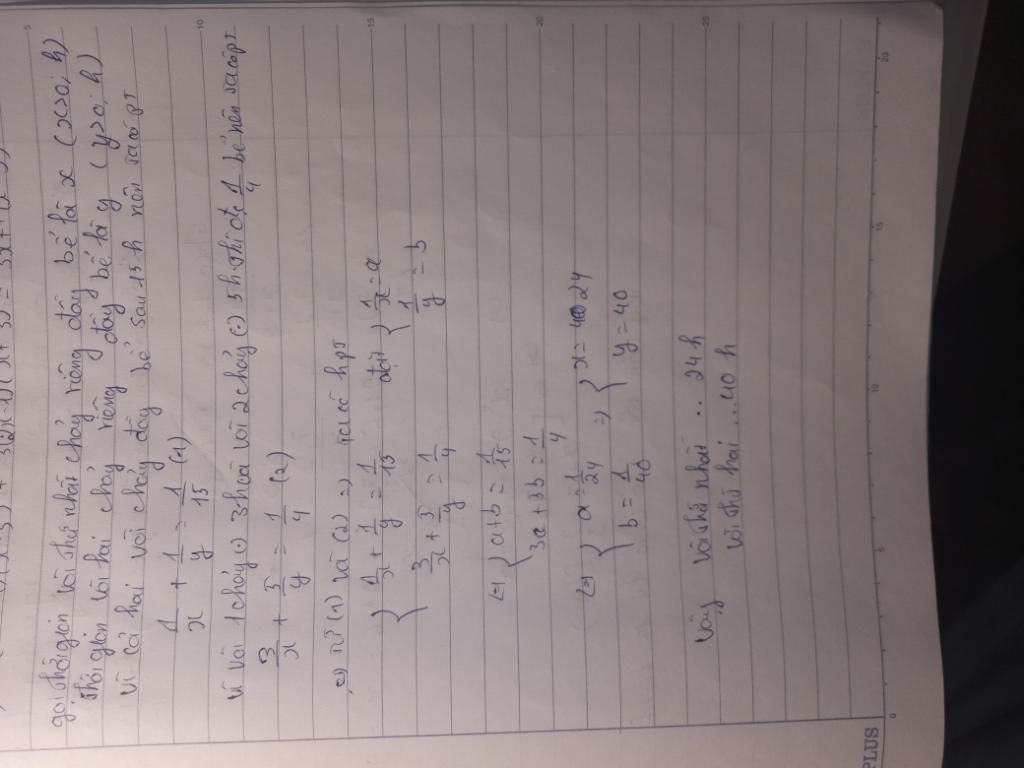 gọi thời gian vòi thứ nhất chảy riêng đầy bể là x (x>0; h)
thời gian vòi hai chảy riêng đầy bể là y (y>0; h)
Vì cả hai vòi chảy đầy bể sau 15h nên ta có pt
1/x + 1/y = 1/15 (1)
Vì vòi 1 chảy 3h và vòi 2 chảy 5h thì đc 1/4 bể nên ta có pt
3/x + 5/y = 1/4 (2)
từ (1) và (2) => Ta có hpt
{ 1/x + 1/y = 1/15 đặt { 1/x = a
3/x + 5/y = 1/4 1/y = b
<=> { a+b = 1/15
3a + 3b = 1/4
<=> { a = 1/24 => { x = 24
b = 1/40 y = 40
Vậy vòi thứ nhất .. 24h
vòi thứ hai ... 40 h
PLUS
5
10
15
20
25
0
5
10
15
20